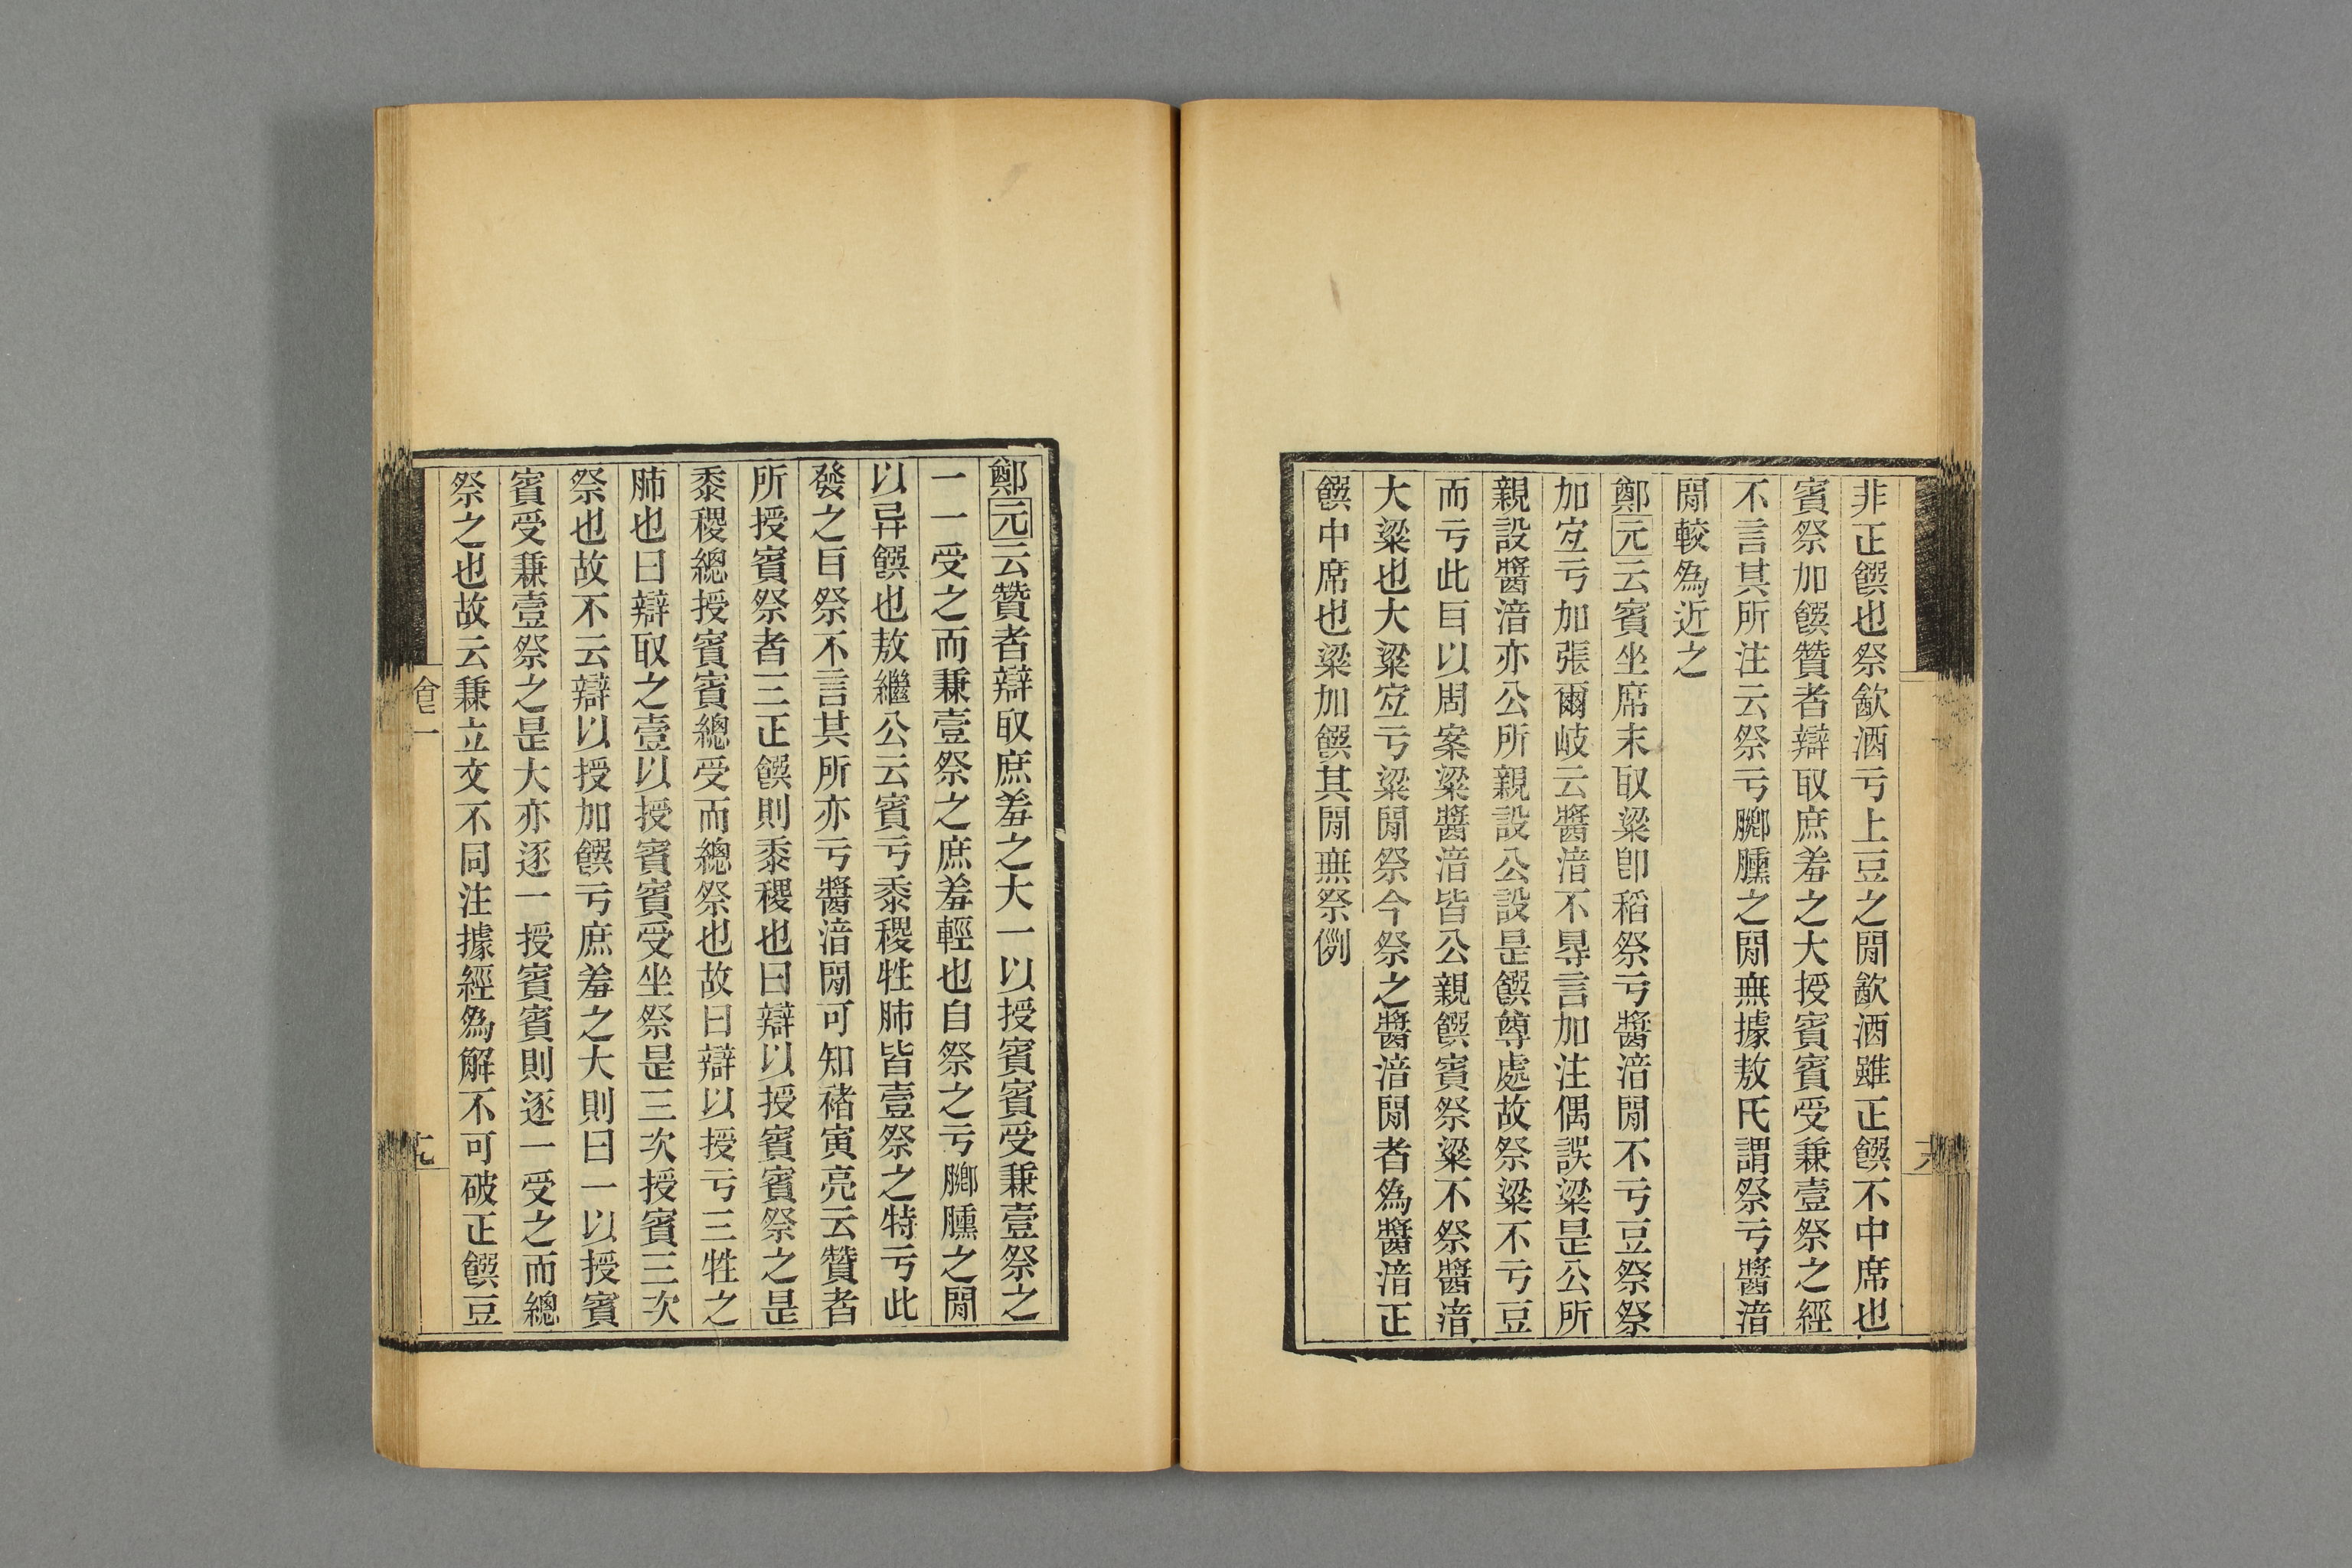 非正饌也祭歠酒亏上豆之閒歠酒雖正饌不中席也
賓祭加饌贊者辯取庶羞之大授賓賓受兼壹祭之經
不言其所注云祭亏膷臐之閒無據敖氏謂祭亏醬湆
閒較為近之
鄭元云賓坐席末取粱卽稻祭亏醬湆閒不亏豆祭祭
加宐亏加張爾岐云醬湆不㝵言加注偶誤粱是公所
親設醬湆亦公所親設公設是饌尊處故祭粱不亏豆
而亏此㠯以周案粱醬湆皆公親饌賓祭粱不祭醬湆
大粱也大粱宐亏粱閒祭今祭之醬湆閒者為醬湆正
饌中席也粱加饌其閒無祭例
鄭元云贊者辯取庶羞之大一以授賓賓受兼壹祭之
一一受之而兼壹祭之庶羞輕也自祭之亏膷臐之閒
以异饌也敖繼公云賓亏黍稷牲肺皆壹祭之特亏此
發之㠯祭不言其所亦亏醬湆閒可知褚寅亮云贊者
所授賓祭者三正饌則黍稷也曰辯以授賓賓祭之是
黍稷總授賓賓總受而總祭也故曰辯以授亏三牲之
肺也曰辯取之壹以授賓賓受坐祭是三次授賓三次
祭也故不云辯以授加饌亏庶羞之大則曰一以授賓
賓受兼壹祭之是大亦逐一授賓賓則逐一受之而總
祭之也故云兼立文不同注據經為解不可破正饌豆